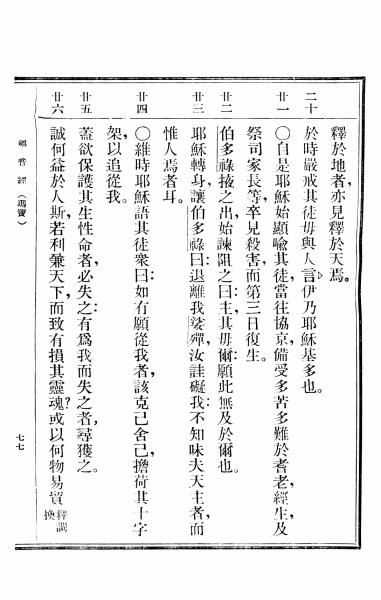 釋於地者,亦見釋於天焉。
二十
於時嚴戒其徒毋與人言,伊乃耶穌基多也。
廿一
〇自是耶穌始顯喻其徒,當往協京,備受多苦多難於耆老,經生,及
祭司家長等,卒見殺害,而第三日復生。
廿二
伯多祿掖之出始諫阻之曰:主其毋爾,願此無及於爾也。
廿三
耶穌轉身,讓伯多祿曰:退離我娑殫,汝詿礙我:不知味夫天主者,而
惟人焉者耳。
廿四
〇維時耶穌語其徒衆曰:如有願從我者,該克己舍己,擔荷其十字
架以追從我。
廿五
蓋欲保護其生性命者,必失之:有爲我而失之者,尋獲之。
廿六
誠何益於人斯,若利兼天下,而致有損其靈魂?或以何物易貿
釋調
換
福音經(瑪竇)
七七